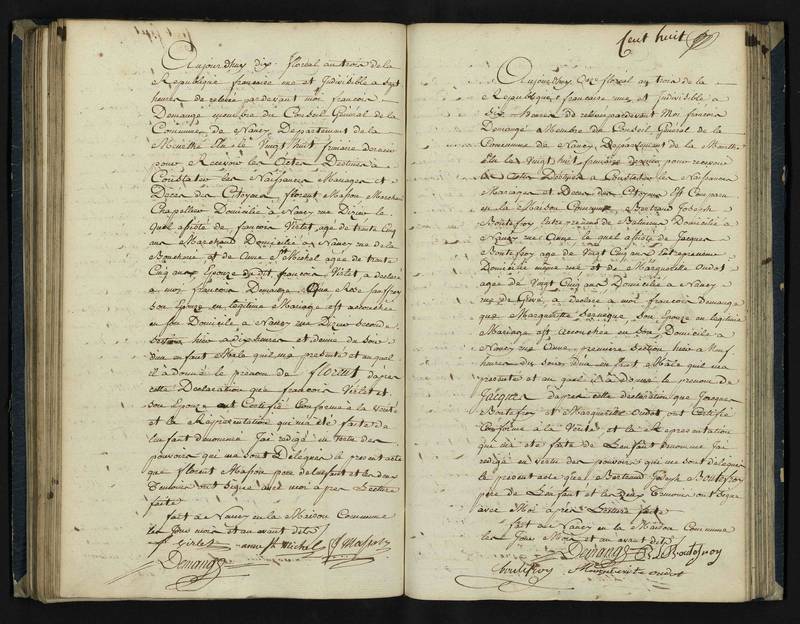 Aujourdhuy dix floreal an trois de la
Republique francaise une et Indivisible a Sept
heures de relevée pardevant moi francois
Demange membre du Conseil Général de la
Commune de Nancy Departement de la
Meurthe Elu le Vingt huit frimaire dernier
pour Recevoir les Actes Destinés a
Constater les Naissances Mariages et
Décès des Citoyens, florent Masson Marchand
Chapellier Domicilié à Nancy rue
quel assisté de francois Virlet, age de trente Cinq
ans Marchand Domicilié a Nancy rue de la
Boucherie et de Anne St Michel agée de trente
Cinq ans Epouze dudit francois Virlet a declaré
a moi francois Demange Que Rose
Son Epouze en legitime Mariage est accouchée
en son Domicile a Nancy rue seconde
Section hier a dix heures et demie du soir
dun enfant Male quil ma présenté et auquel
il a donné le prénom de florent dapres
cette Declaration que francois Virlet et
Son Epouze ont Certifié Conforme à la Verité
et la Representation qui ma été faite de
lenfant denommé Jai redigé en Vertu des
pouvoirs qui ma sont Délégués le présent acte
que florent Masson pere de lenfant et les deux
Temoins ont signé avec moi apres Lecture
faite
fait a Nancy en la Maison Commune
les Jour mois et an avant dits
f Virlet anne St michel f Masson
Demange
Cent huit
Aujourdhuy onze floreal an trois de la
Republique francaise une et Indivisible a
Six heures de relevée pardevant Moi francois
Demange Membre du Conseil Général de la
Commune de Nancy, Departement de la Meurthe
Elu le Vingt huit frimaire dernier pour recevoir
les Actes Destinés a Constater les Naissances
Mariages et Décès des Citoyens Est Comparu
en la Maison Commune, Bertrand Joseph
Boutefroy Entrepreneur de Batimens Domicilié a
Nancy rue Anne le quel assisté de Jacques
Boutefroy age de Vingt Cinq ans Entrepreneur
Domicilié même rue et de Marguerite Oudot
agée de Vingt Cinq ans Domiciliée a Nancy
rue de Grève, a declaré a moi francois demange
que Marguerite Son Epouze en legitime
Mariage est accouchée en son Domicile à
Nancy rue Anne, premiere Section hier a Neuf
heures du soir dun enfant Male quil ma
presenté et au quel il à donné le prenom de
Jacques dapres cette declaration que Jacques
Boutefroy et Marguerite Oudot ont Certifié
Conforme à la Verité et la Representation
qui ma été faite de Lenfant denommé Jai
redigé en vertu des pouvoirs qui me sont délégués
le présent acte que Bertrand Joseph Boutefroy
pere de Lenfant et les deux Temoins ont signé
avec Moi apres Lecture faite
fait a Nancy en la Maison Commune
les Jour Mois et an avant dits
Demange B J Boutefroy
boutefroy Marguerite oudot